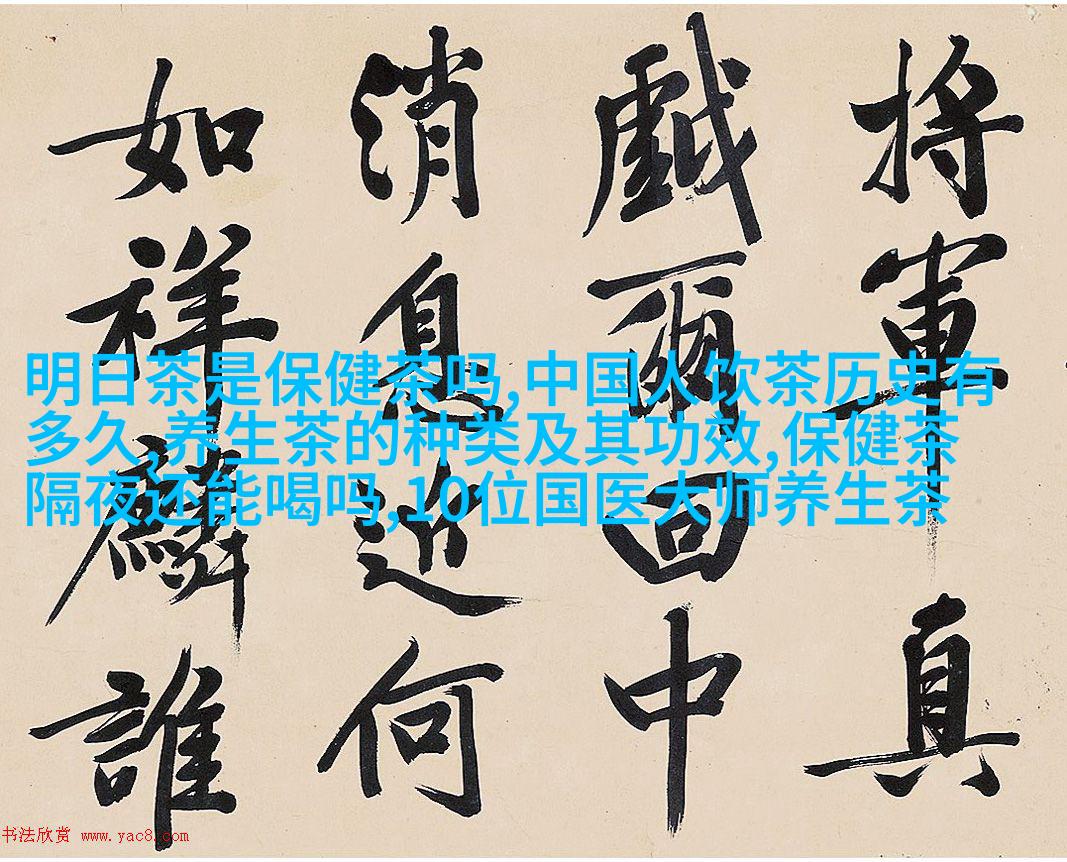 明日茶是保健茶吗,中国人饮茶历史有
多久,养生茶的种类及其功效,保健茶
隔夜还能喝吗,10位国医大师养生茶
将軍真
戲爾回中
消息近何
如祥麟誰
书法欣赏 www.yac8.com